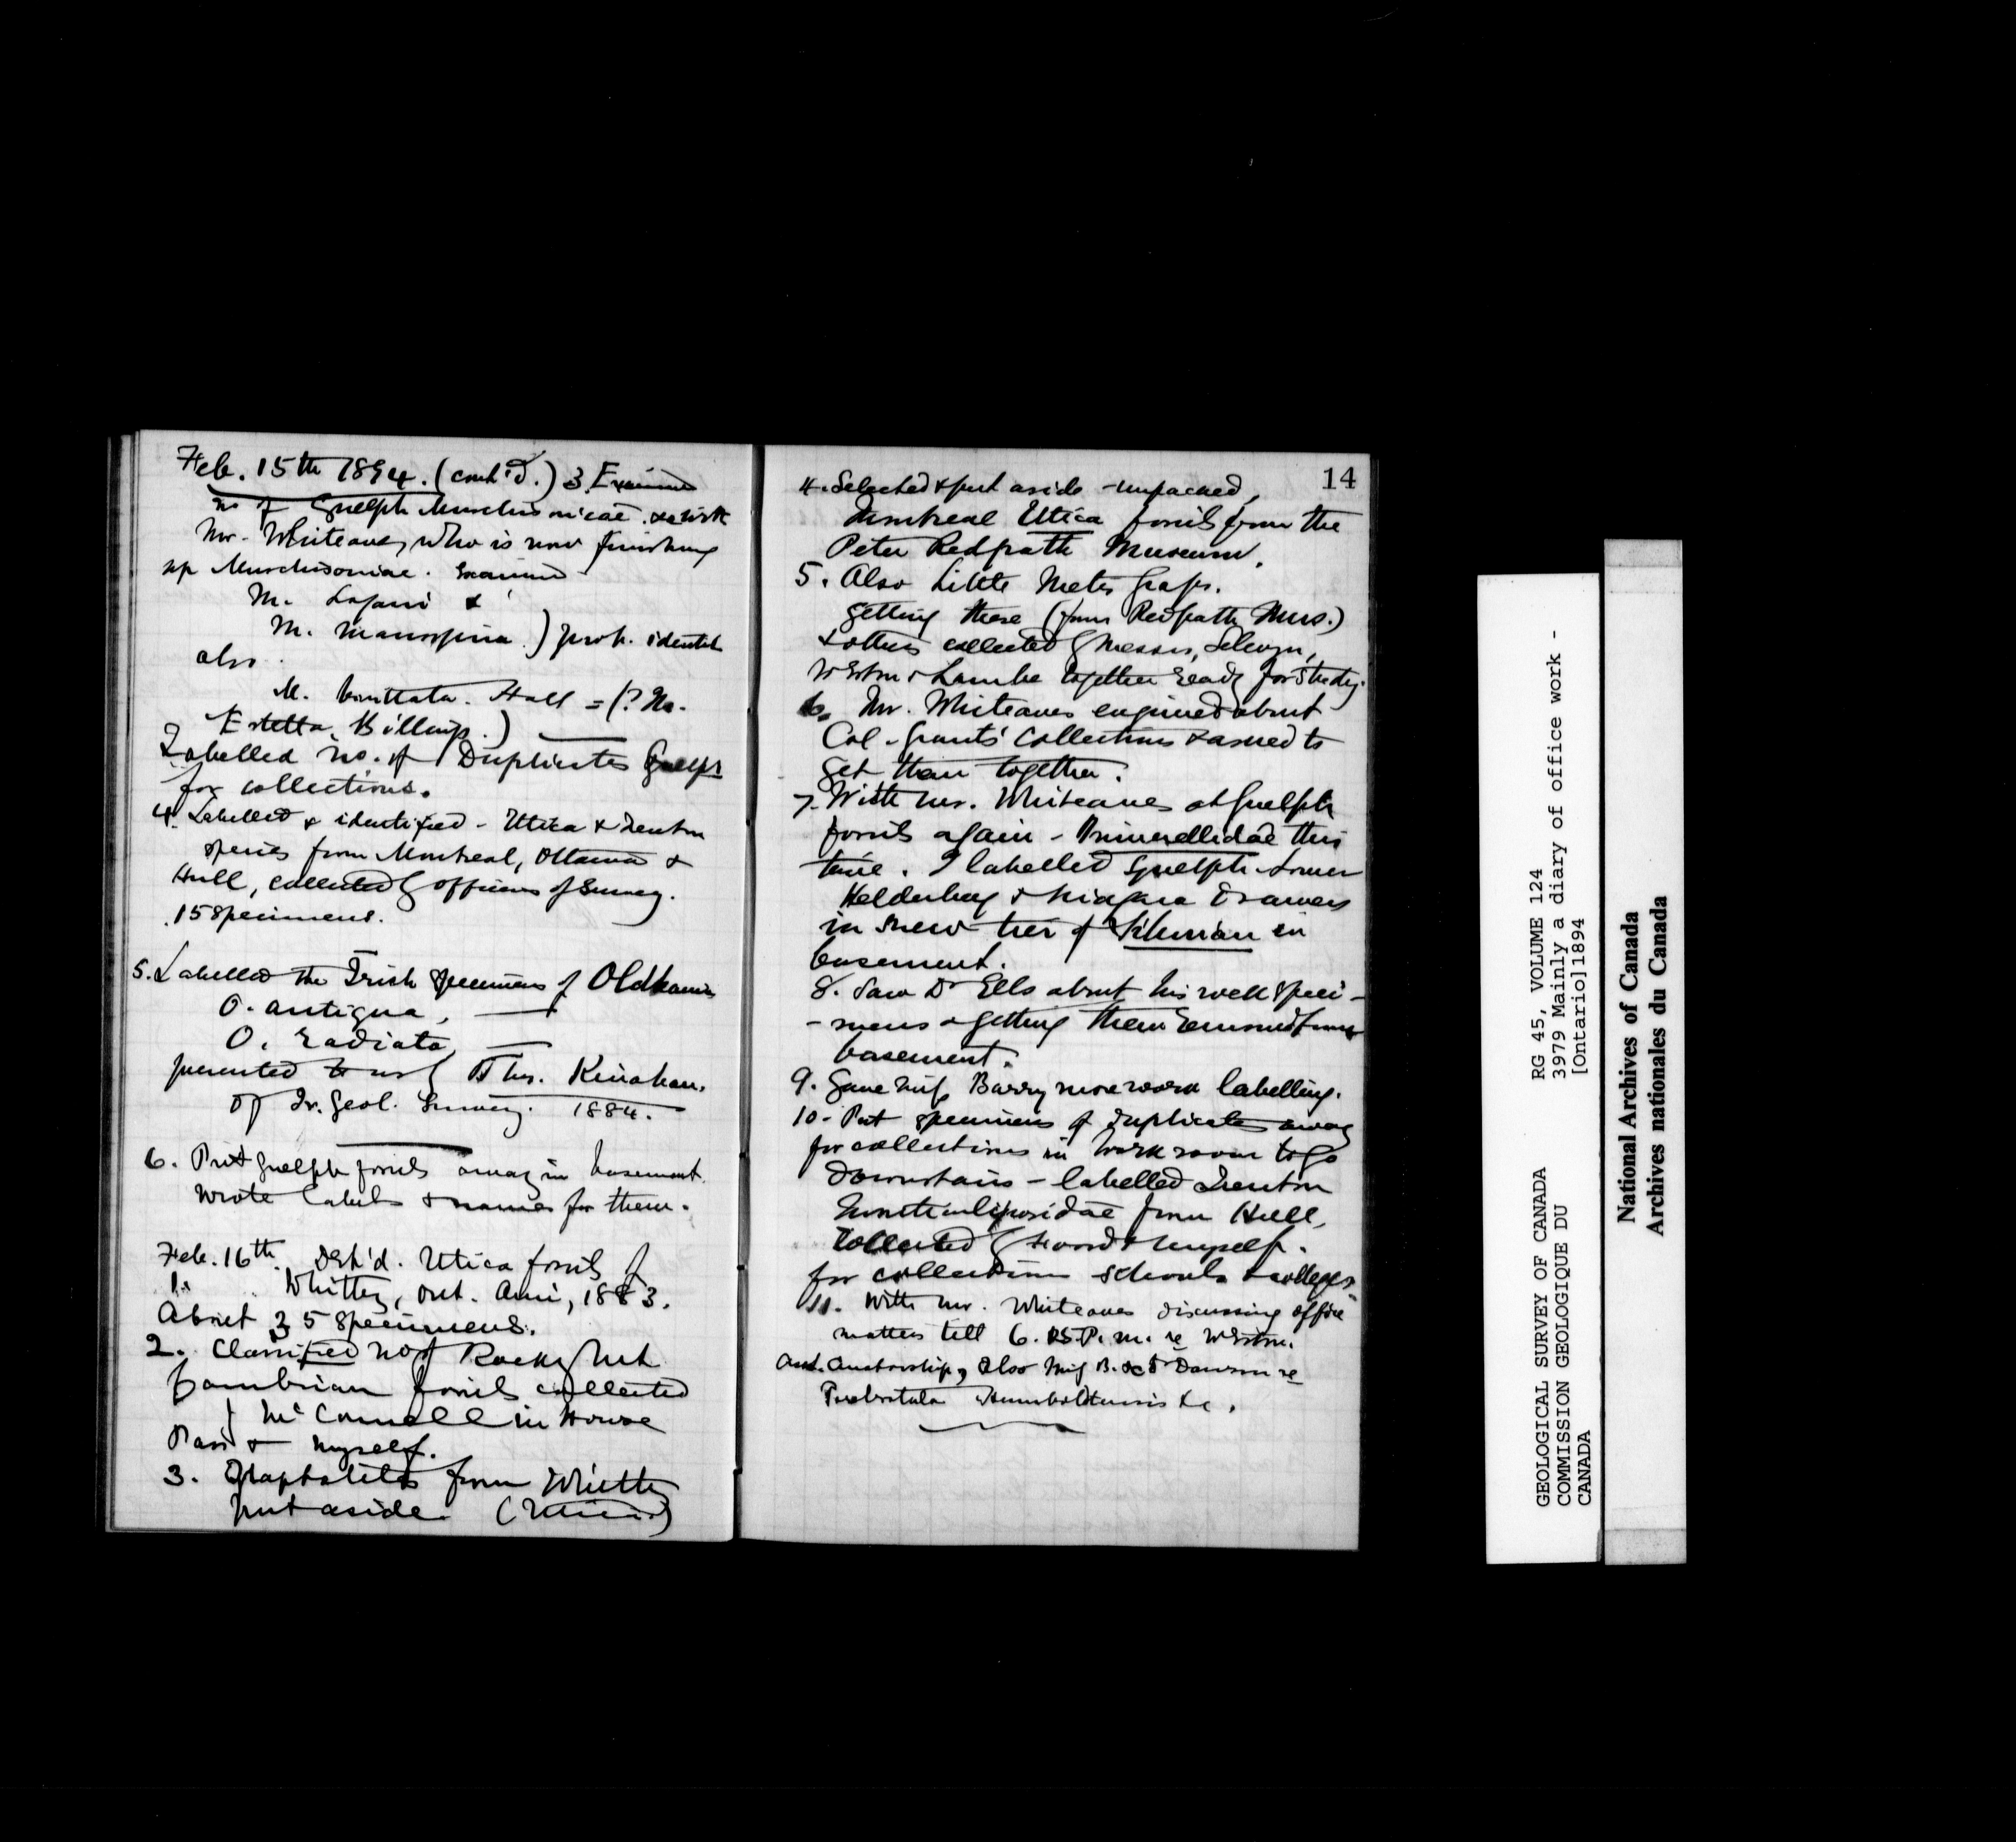 Feb. 15th 1894. (cont'd.) 3. Examined
no of Guelph Murchisoniae. & with
Mr. Whiteaves, who is now finishing
up Murchisoniae. Examined
M. Logani &
M. macrospira.) prob. identical
also
M. bivittata. Hall = (? M.
Estella, Billings.)
Labelled no. of Duplicates Guelph
for collections.
4. Labelled & identified - Utica & Trenton
species from Montreal, Ottawa &
Hull, collected by officers of Survey.
15 specimens.
5. Labelled the Irish specimens of Oldhamia
O. antiqua,
O. radiata,
presented to us by Thos. Kinahan.
of Ir. Geol. Survey. 1884.
6. Put Guelph fossils away in basement.
wrote labels & names for them.
Feb. 16th. Det'd. Utica fossils of
1. Whitby, Ont. Ami, 1883.
About 35 specimens.
2. Classified no of Rocky Mt
Cambrian fossils collected
by McConnell in Horse
Pass & myself.
3. Graptolites from Whitby
put aside. (Utica)
14
4. Selected & put aside - unpacked,
Montreal Utica fossils from the
Peter Redpath Museum.
5. Also Little Metis Graps.
getting these (from Redpath Mus.)
& others collected by Messrs, Selwyn,
Weston & Lambe together ready for study.
6. Mr. Whiteaves enquired about
Col. Grants' collections & asked to
get them together.
7. With Mr. Whiteaves at Guelph
fossils again - Trimerellidae this
time. I labelled Guelph Lower
Helderberg & Niagara Drawers
in new tier of Silurian in
basement.
8. Saw Dr Ells about his rock speci-
-mens & getting them removed from
basement.
9. Gave Miss Barry more work labelling.
10. Put specimens of duplicates away
for collections in work room to go
Downstairs - labelled Trenton
from Hull,
Collected by & myself.
for collections schools & colleges.
11. With Mr. Whiteaves discussing office
matters till 6.15 P.m. re Weston.
and. Authorship, also Miss B. & Dr Dawson re
Humboldtensis &c.
GEOLOGICAL SURVEY OF CANADA
COMMISSION GEOLOGIQUE DU
CANADA
RG 45, VOLUME 124
3979 Mainly a diary of office work -
[Ontario]1894
National Archives of Canada
Archives nationales du Canada